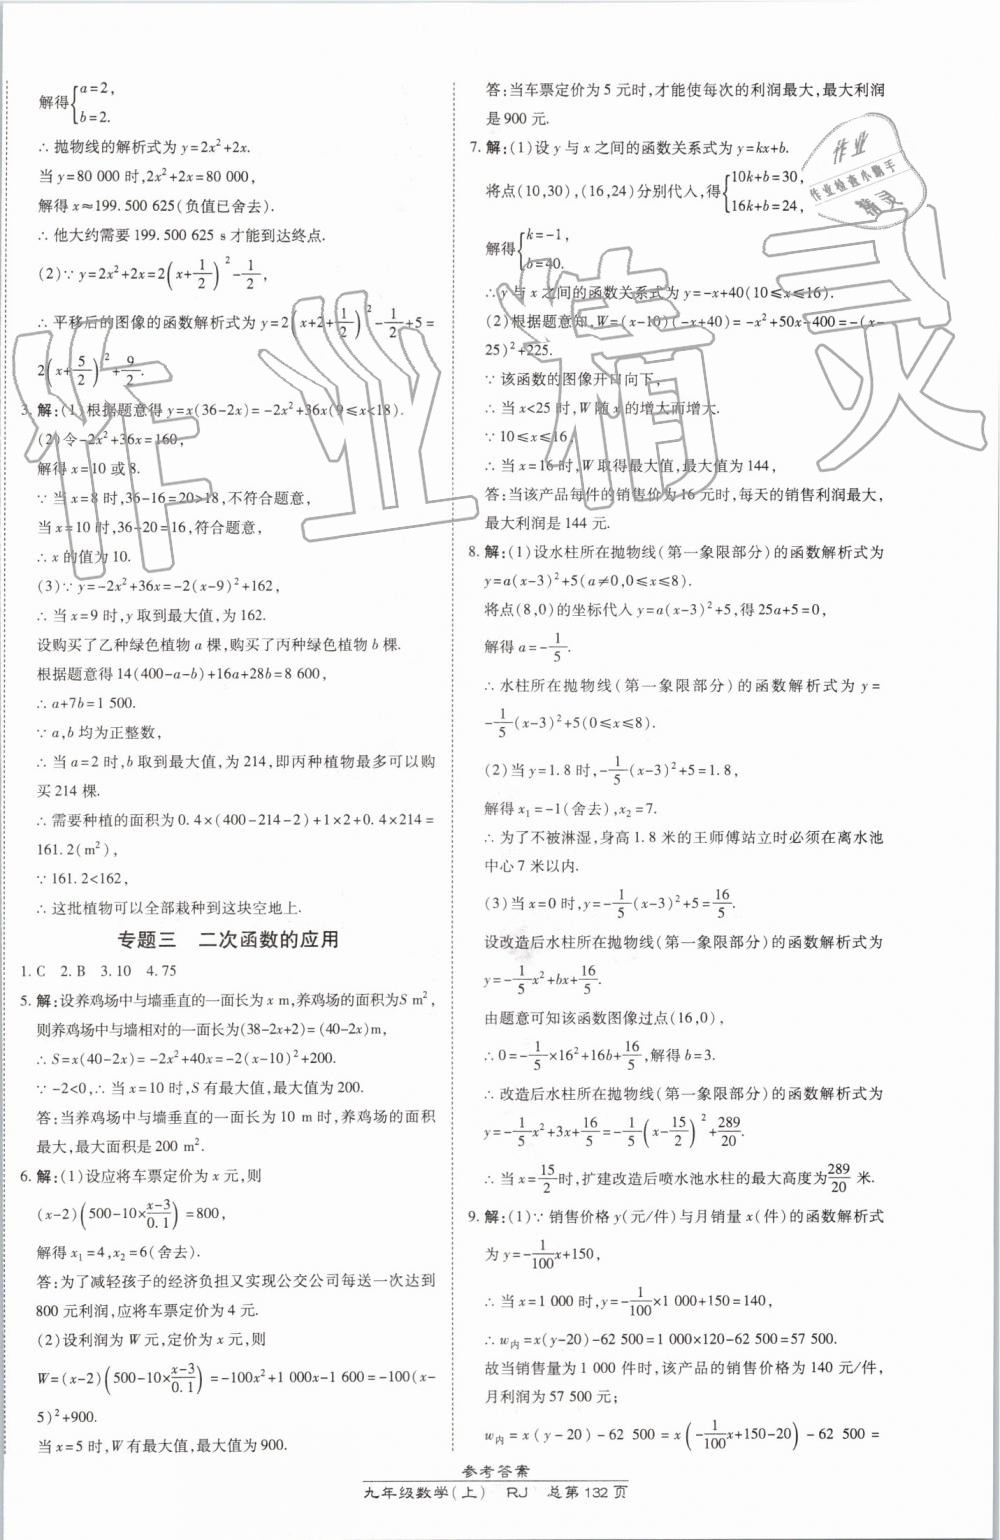 解得{a=2,
b=2.
∴抛物线的解析式为y=2x²+2x.
当y=80 000时,2x²+2x=80 000,
解得x≈199.500 625(负值已舍去).
∴他大约需要199.500 625 s才能到达终点.
(2)∵y=2x²+2x=2(x+1/2)²-1/2,
∴平移后的图像的函数解析式为y=2(x+2+1/2)²-1/2+5=
2(x+5/2)²+9/2.
3.解:(1)根据题意得y=x(36-2x)=-2x²+36x(9≤x<18).
(2)令-2x²+36x=160,
解得x=10或8.
∵当x=8时,36-16=20>18,不符合题意,
当x=10时,36-20=16,符合题意,
∴x的值为10.
(3)∵y=-2x²+36x=-2(x-9)²+162,
∴当x=9时,y取到最大值,为162.
设购买了乙种绿色植物a棵,购买了丙种绿色植物b棵.
根据题意得14(400-a-b)+16a+28b=8 600,
∴a+7b=1 500.
∵a,b均为正整数,
∴当a=2时,b取到最大值,为214,即丙种植物最多可以购
买214棵.
∴需要种植的面积为0.4×(400-214-2)+1×2+0.4×214=
161.2(m²),
∵161.2<162,
∴这批植物可以全部栽种到这块空地上.
专题三 二次函数的应用
1.C 2.B 3.10 4.75
5.解:设养鸡场中与墙垂直的一面长为x m,养鸡场的面积为S m²,
则养鸡场中与墙相对的一面长为(38-2x+2)=(40-2x)m,
∴S=x(40-2x)=-2x²+40x=-2(x-10)²+200.
∵-2<0,∴当x=10时,S有最大值,最大值为200.
答:当养鸡场中与墙垂直的一面长为10 m时,养鸡场的面积
最大,最大面积是200 m².
6.解:(1)设应将车票定价为x元,则
(x-2)(500-10×(x-3)/0.1)=800,
解得x₁=4,x₂=6(舍去).
答:为了减轻孩子的经济负担又实现公交公司每送一次达到
800元利润,应将车票定价为4元.
(2)设利润为W元,定价为x元,则
W=(x-2)(500-10×(x-3)/0.1)=-100x²+1 000x-1 600=-100(x-
5)²+900.
当x=5时,W有最大值,最大值为900.
答:当车票定价为5元时,才能使每次的利润最大,最大利润
是900元.
7.解:(1)设y与x之间的函数关系式为y=kx+b.
将点(10,30),(16,24)分别代入,得{10k+b=30,
16k+b=24,
解得{k=-1,
b=40.
∴y与x之间的函数关系式为y=-x+40(10≤x≤16).
(2)根据题意知,W=(x-10)(-x+40)=-x²+50x-400=-(x-
25)²+225.
∵该函数的图像开口向下,
∴当x<25时,W随x的增大而增大.
∵10≤x≤16,
∴当x=16时,W取得最大值,最大值为144,
答:当该产品每件的销售价为16元时,每天的销售利润最大,
最大利润是144元.
8.解:(1)设水柱所在抛物线(第一象限部分)的函数解析式为
y=a(x-3)²+5(a≠0,0≤x≤8).
将点(8,0)的坐标代入y=a(x-3)²+5,得25a+5=0,
解得a=-1/5.
∴水柱所在抛物线(第一象限部分)的函数解析式为y=
-1/5(x-3)²+5(0≤x≤8).
(2)当y=1.8时,-1/5(x-3)²+5=1.8,
解得x₁=-1(舍去),x₂=7.
∴为了不被淋湿,身高1.8米的王师傅站立时必须在离水池
中心7米以内.
(3)当x=0时,y=-1/5(x-3)²+5=16/5.
设改造后水柱所在抛物线(第一象限部分)的函数解析式为
y=-1/5x²+bx+16/5.
由题意可知该函数图像过点(16,0),
∴0=-1/5×16²+16b+16/5,解得b=3.
∴改造后水柱所在抛物线(第一象限部分)的函数解析式为
y=-1/5x²+3x+16/5=-1/5(x-15/2)²+289/20.
∴当x=15/2时,扩建改造后喷水池水柱的最大高度为289/20米.
9.解:(1)∵销售价格y(元/件)与月销量x(件)的函数解析式
为y=-1/100x+150,
∴当x=1 000时,y=-1/100×1 000+150=140,
∴w内=x(y-20)-62 500=1 000×120-62 500=57 500.
故当销售量为1 000件时,该产品的销售价格为140元/件,
月利润为57 500元;
w内=x(y-20)-62 500=x(-1/100x+150-20)-62 500=
参考答案
九年级数学(上) RJ 总第132页
作业精灵
作业
作业检查小助手
精灵